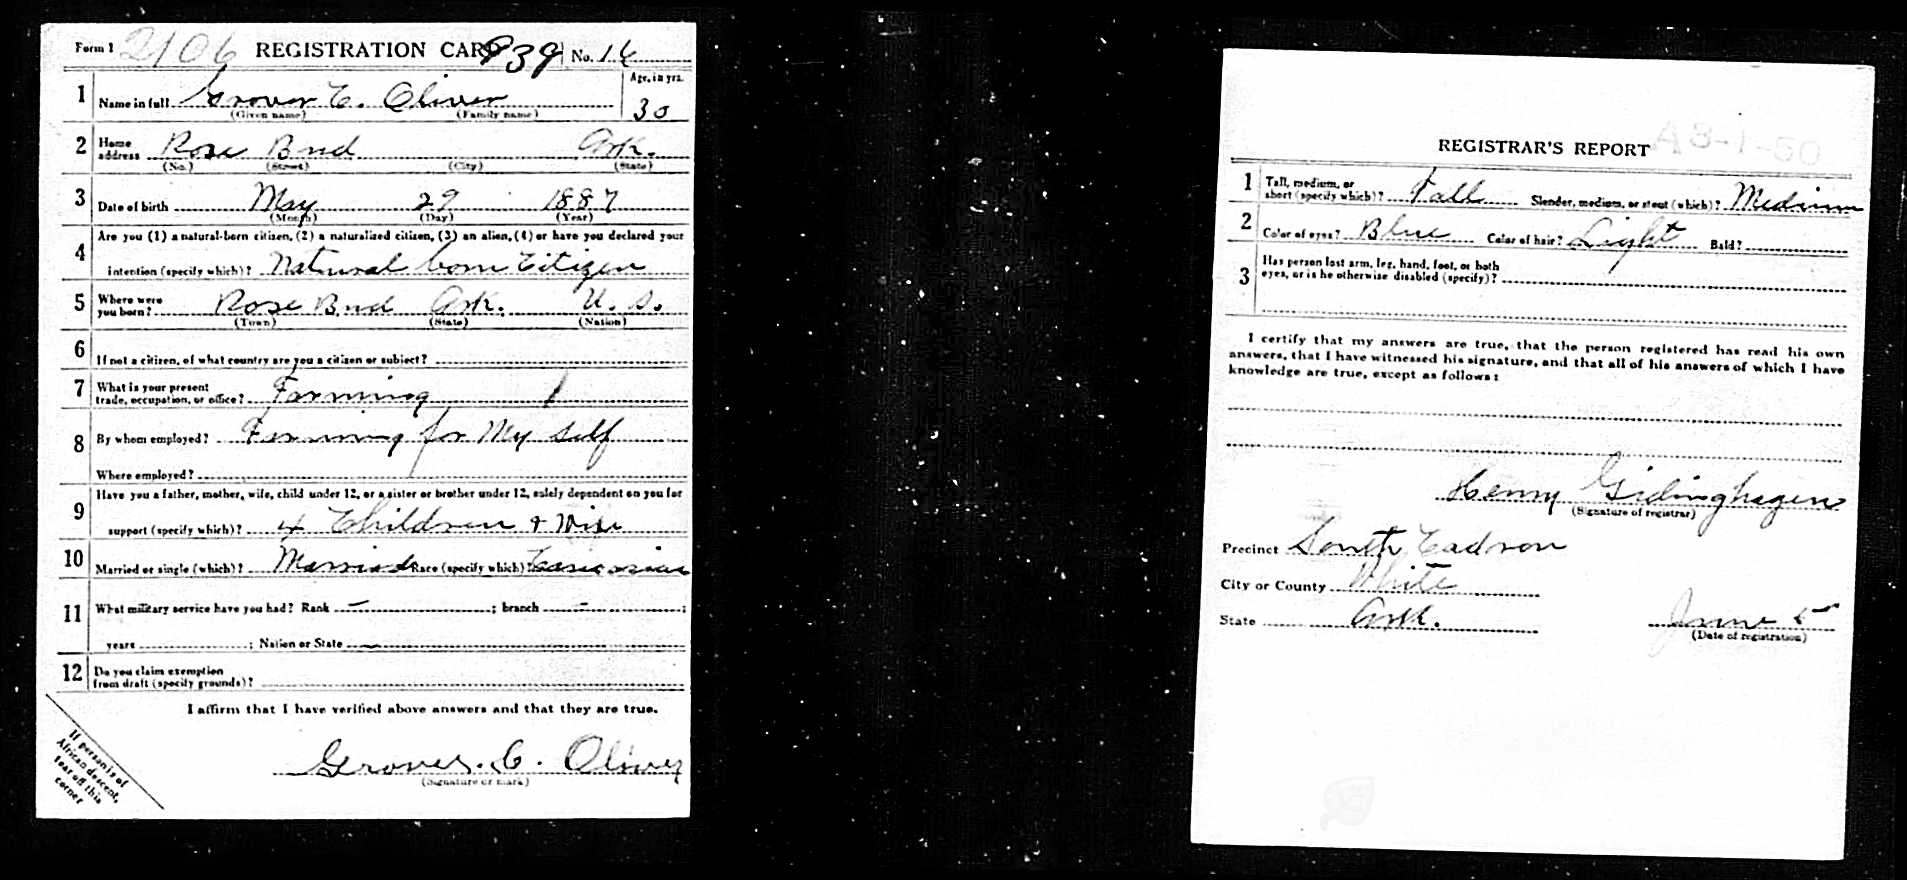 Form 1 2106 REGISTRATION CARD 939 No. 16
1 Name in full Grover C. Oliver Age, in yrs. 30
(Given name) (Family name)
2 Home address Rose Bud Ark.
(No.) (Street) (City) (State)
3 Date of birth May 29 1887
(Month) (Day) (Year)
4 Are you (1) a natural-born citizen, (2) a naturalized citizen, (3) an alien, (4) or have you declared your
intention (specify which)? Natural born Citizen
5 Where were you born? Rose Bud Ark. U. S.
(Town) (State) (Nation)
6 If not a citizen, of what country are you a citizen or subject?
7 What is your present trade, occupation, or office? Farming 1
8 By whom employed? Farming for My self
Where employed?
9 Have you a father, mother, wife, child under 12, or a sister or brother under 12, solely dependent on you for
support (specify which)? 4 Children & Wife
10 Married or single (which)? Married Race (specify which)? Caucasian
11 What military service have you had? Rank — ; branch — ;
years ; Nation or State —
12 Do you claim exemption from draft (specify grounds)?
I affirm that I have verified above answers and that they are true.
Grover. C. Oliver
(Signature or mark)
If person is of
African descent,
tear off this
corner
A3-1-50
REGISTRAR'S REPORT
1 Tall, medium, or short (specify which)? Tall Slender, medium, or stout (which)? Medium
2 Color of eyes? Blue Color of hair? Light Bald?
3 Has person lost arm, leg, hand, foot, or both
eyes, or is he otherwise disabled (specify)?
I certify that my answers are true, that the person registered has read his own
answers, that I have witnessed his signature, and that all of his answers of which I have
knowledge are true, except as follows:
Henry Gidinghagen
(Signature of registrar)
Precinct South Cadron
City or County White
State Ark. June 5
(Date of registration)